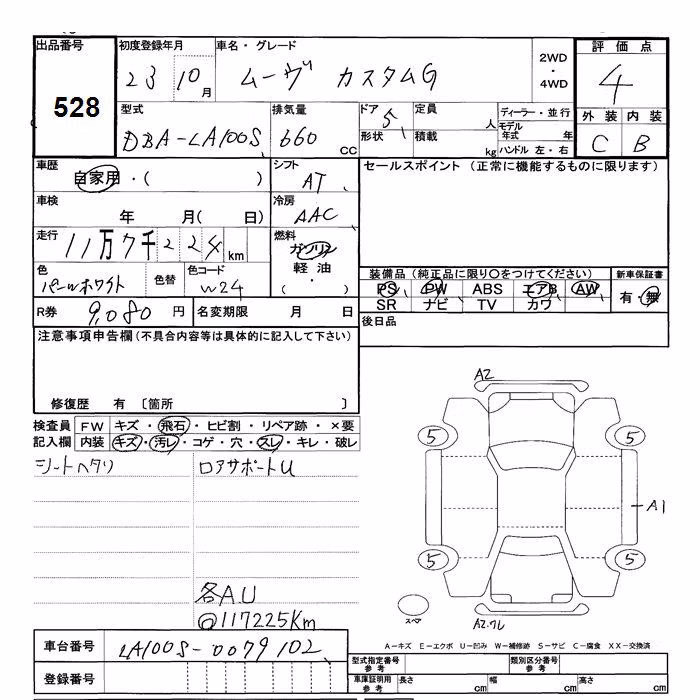 出品番号 初度登録年月 車名・グレード 2WD・4WD 評価点
528 23 10月 ムーヴ カスタムG 4
型式 排気量 ドア 定員 ディーラー・並行 外装 内装
DBA-LA100S 660 CC 5 人 モデル年式 年 C B
形状 積載 kg ハンドル 左・右
車歴 自家用・( ) シフト AT セールスポイント (正常に機能するものに限ります)
車検 年 月( 日) 冷房 AAC
走行 11万7千224km 燃料 ガソリン 軽油・( )
色 パールホワイト 色替 色コード W24
装備品(純正品に限り〇をつけてください) 新車保証書
PS PW ABS エアB AW 有・無
SR ナビ TV カワ
R券 9,080円 名変期限 月 日
後日品
注意事項申告欄(不具合内容等は具体的に記入して下さい)
修復歴 有 〔箇所 〕
検査員 FW キズ・飛石・ヒビ割・リペア跡・×要
記入欄 内装 キズ・汚レ・コゲ・穴・スレ・キレ・破レ
シートヘタリ ロアサポートU
各AU
@117225Km
A2
5 5
A1
5 5
スペア
A2.ワレ
A-キズ E-エクボ U-凹み W-補修跡 S-サビ C-腐食 XX-交換済
車台番号 LA100S-0079102
登録番号
型式指定番号 参考 類別区分番号 参考
車庫証明用 参考 長さ cm 幅 cm 高さ cm